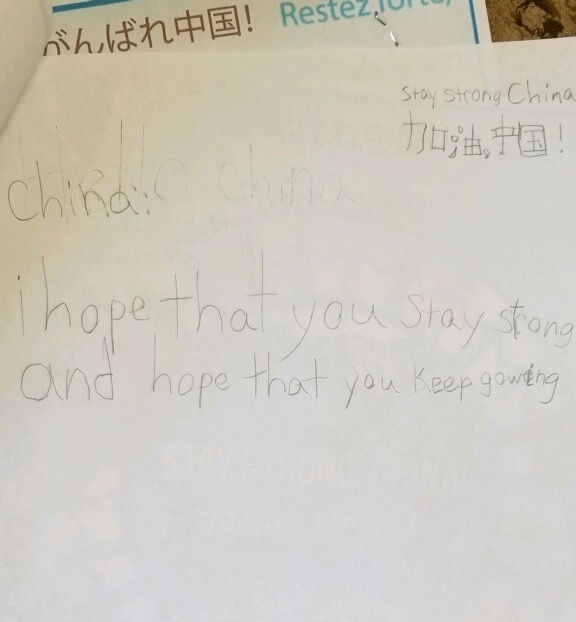 がんばれ中国! Restez forte,
stay strong China
加油,中国!
China:
i hope that you stay strong
and hope that you keep gowing